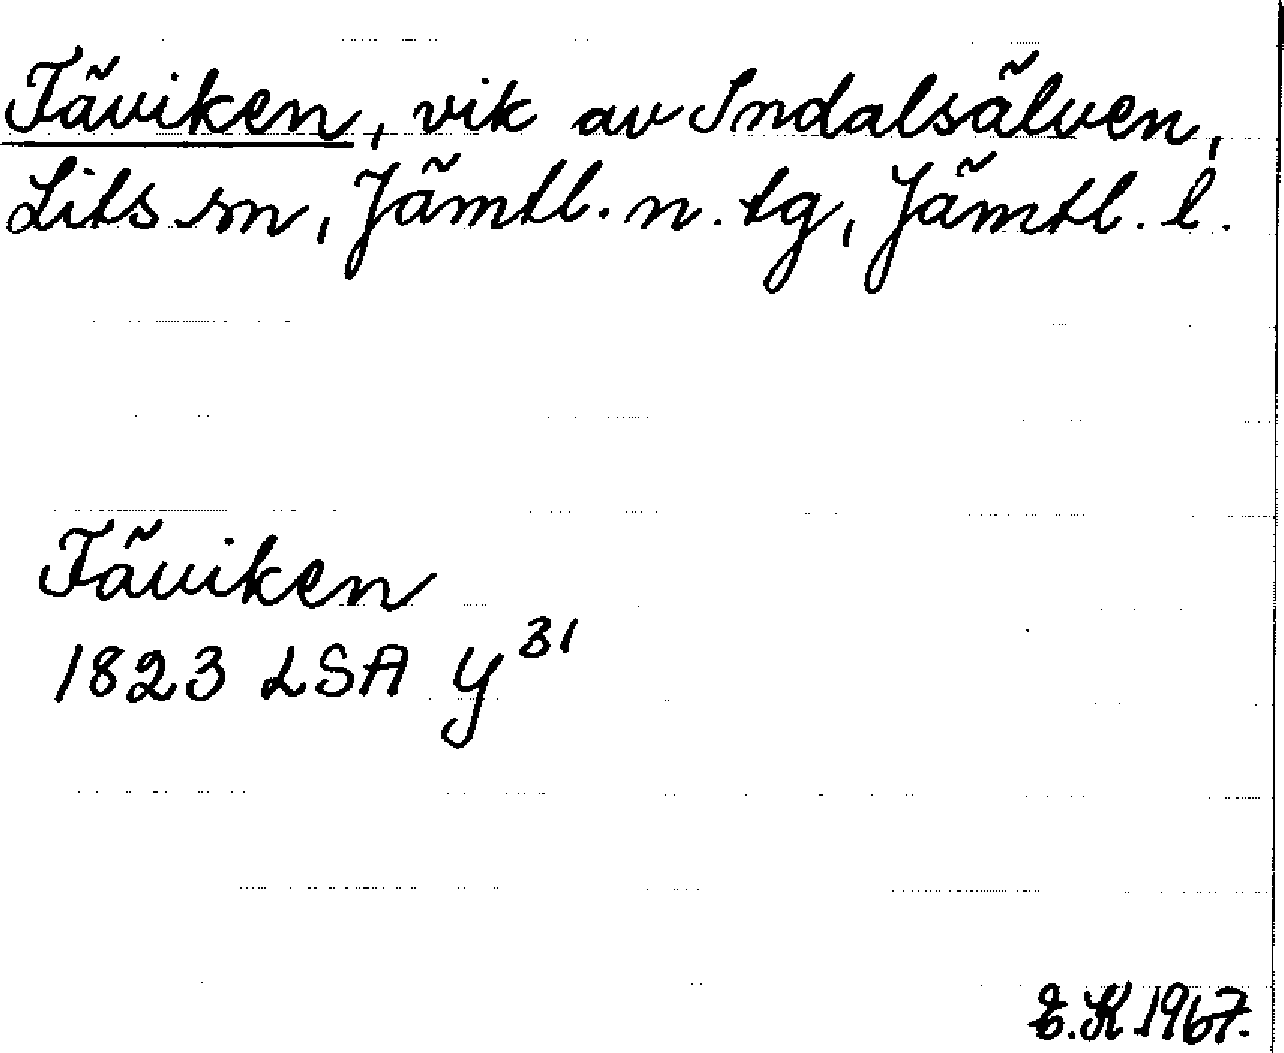 Täviken, vik av Indalsälven,
Lits sn, Jämtl. n. tg, Jämtl. l.
Täviken
1823 LSA Y 31
E.K 1967.